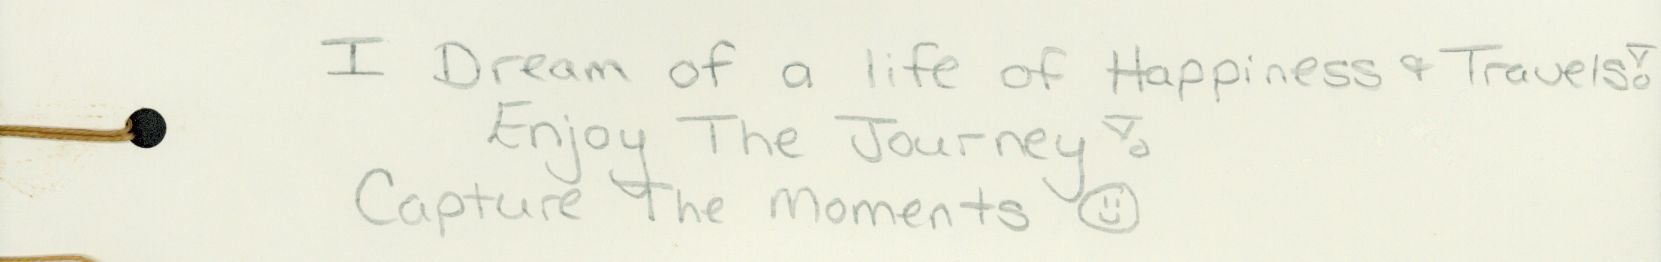 I Dream of a life of Happiness & Travels!
Enjoy The Journey!
Capture The Moments ☺